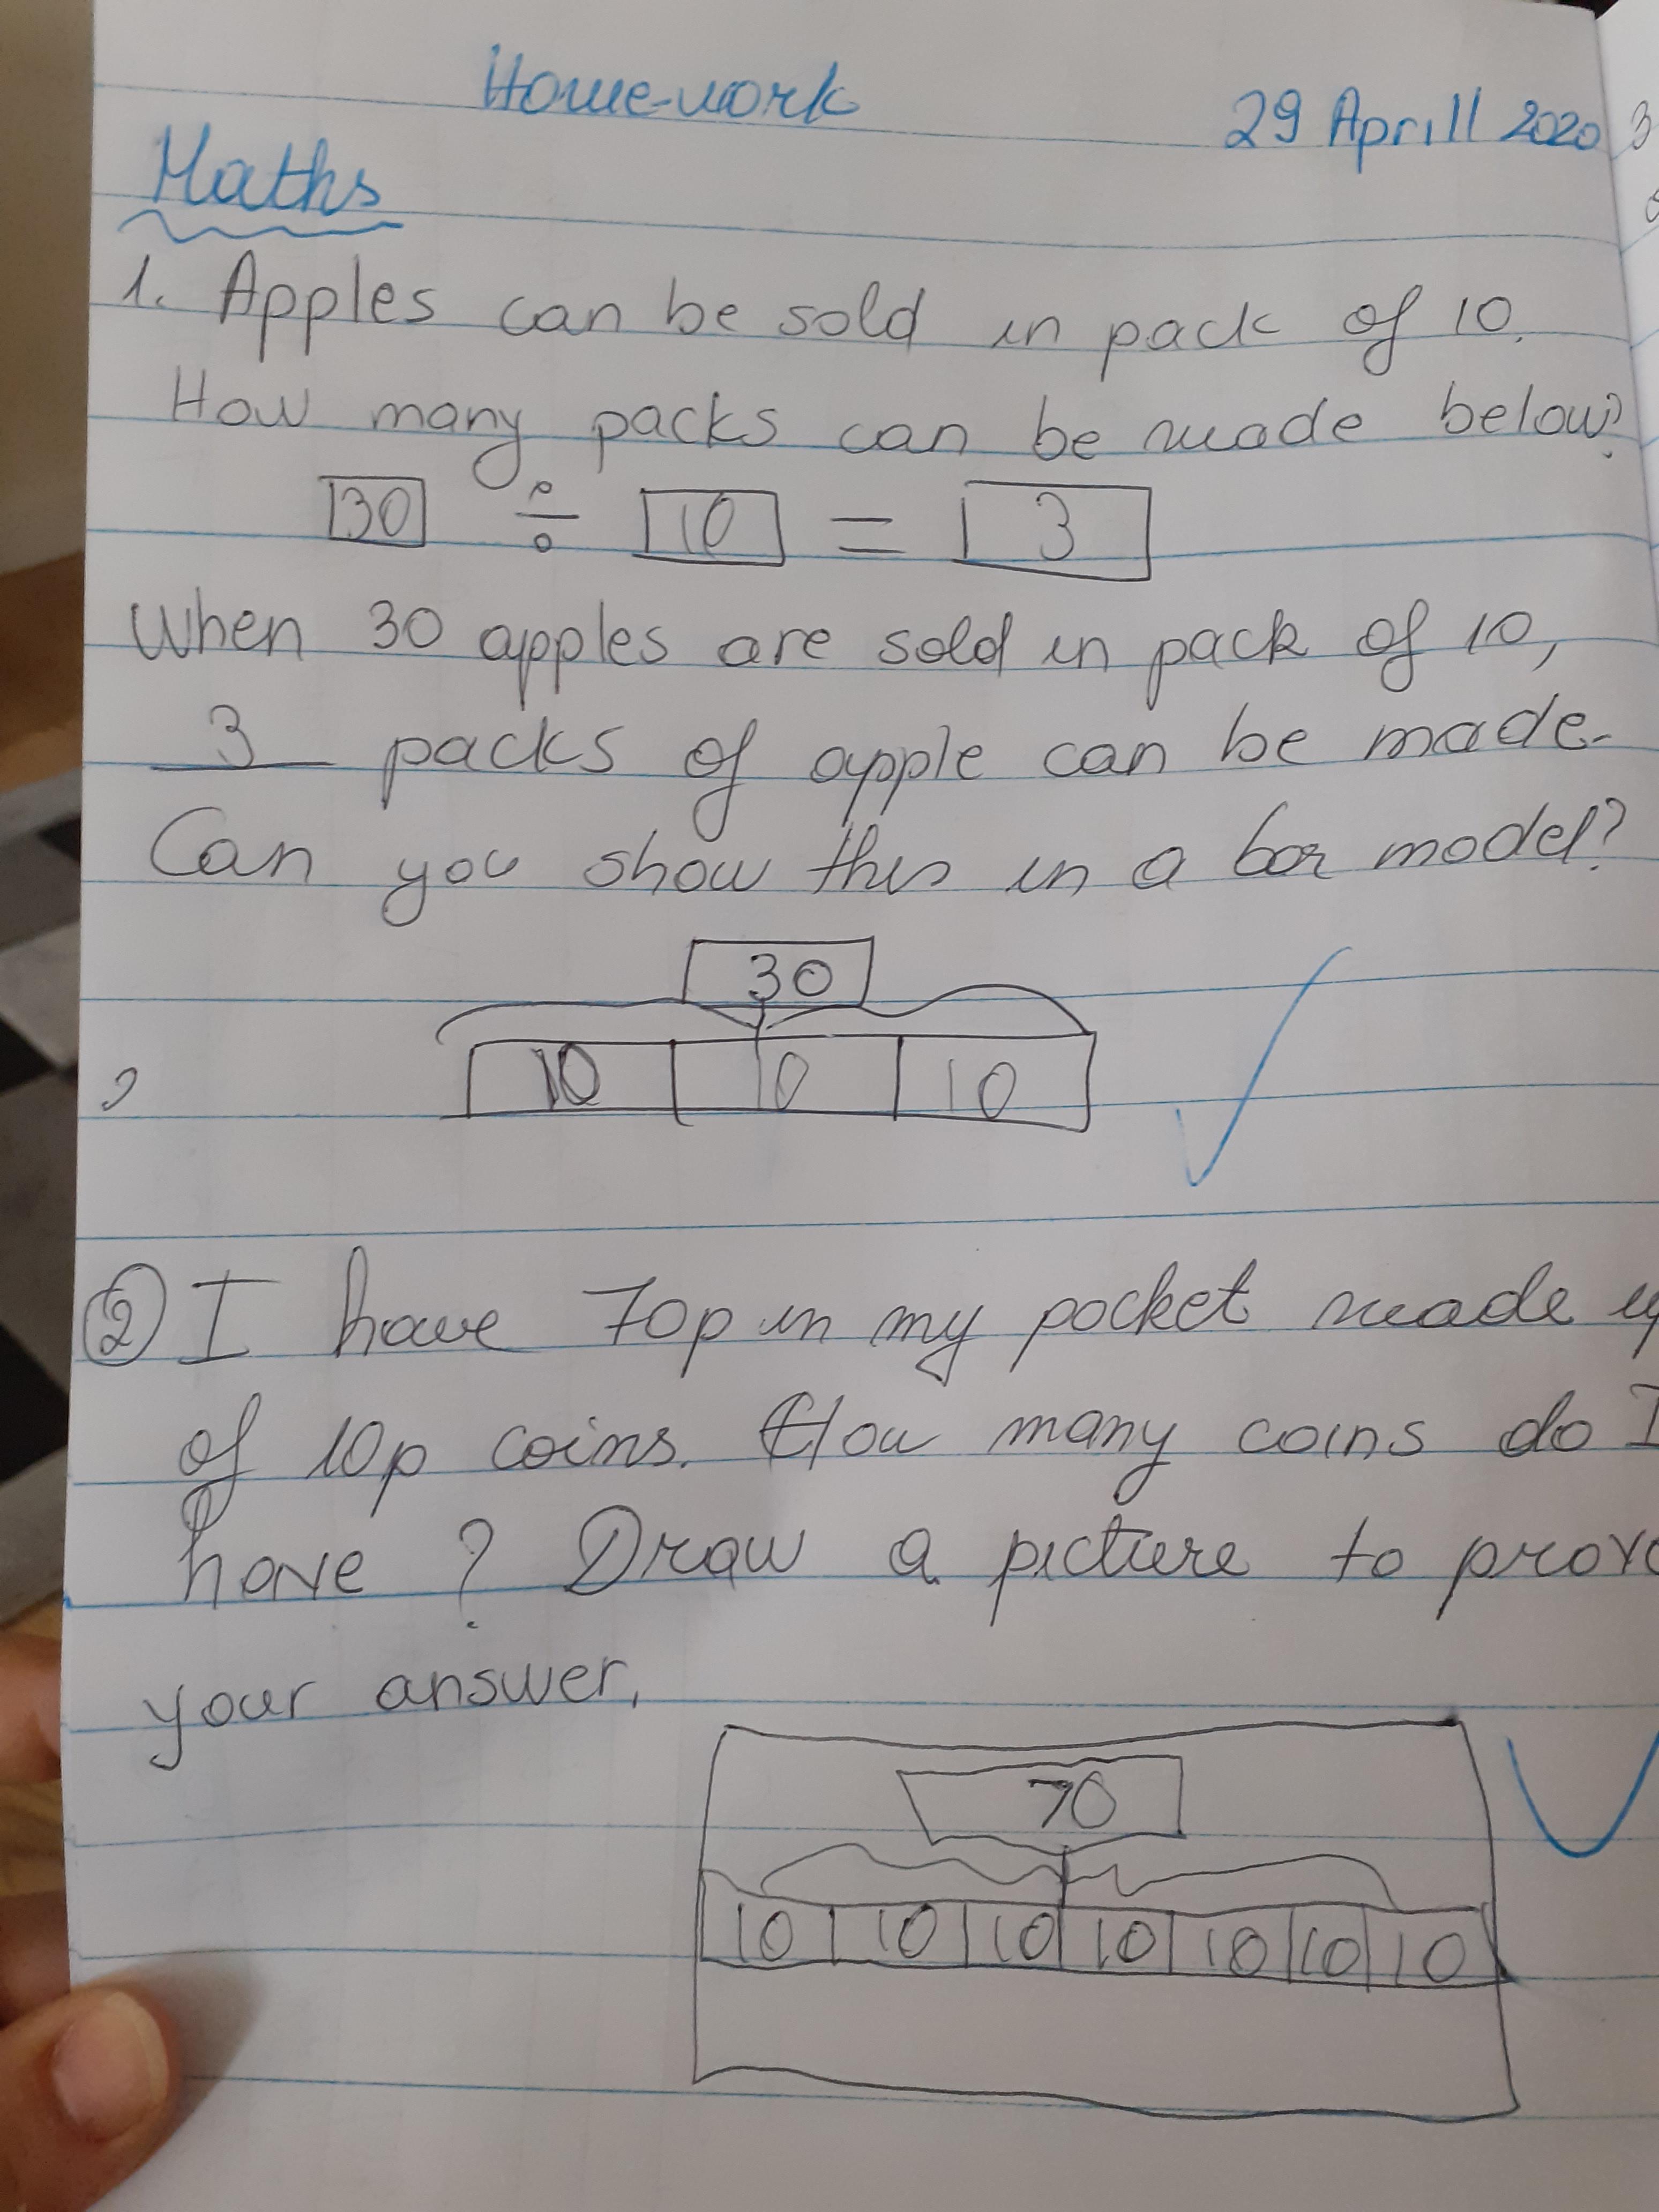 Home-work
29 Aprill 2020
Maths
1. Apples can be sold in pack of 10.
How many packs can be made below?
30 ÷ 10 = 3
When 30 apples are sold in pack of 10,
3 packs of apple can be made.
Can you show this in a bar model?
30
10 10 10
2 I have 70p in my pocket made
of 10p coins. How many coins do I
have? Draw a picture to prove
your answer.
70
10 10 10 10 10 10 10